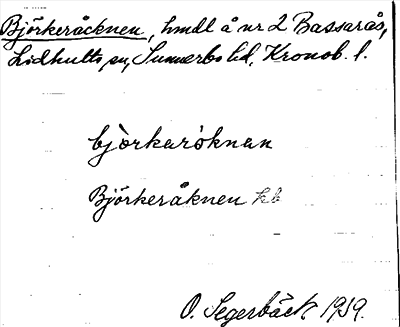 Björkeråcknen, hmdl å nr 2 Bassarås,
Lidhults sn, Sunnerbo hd, Kronob. l.
bjòrkaròknan
Björkeråknen kb
O. Segerbäck 1939.